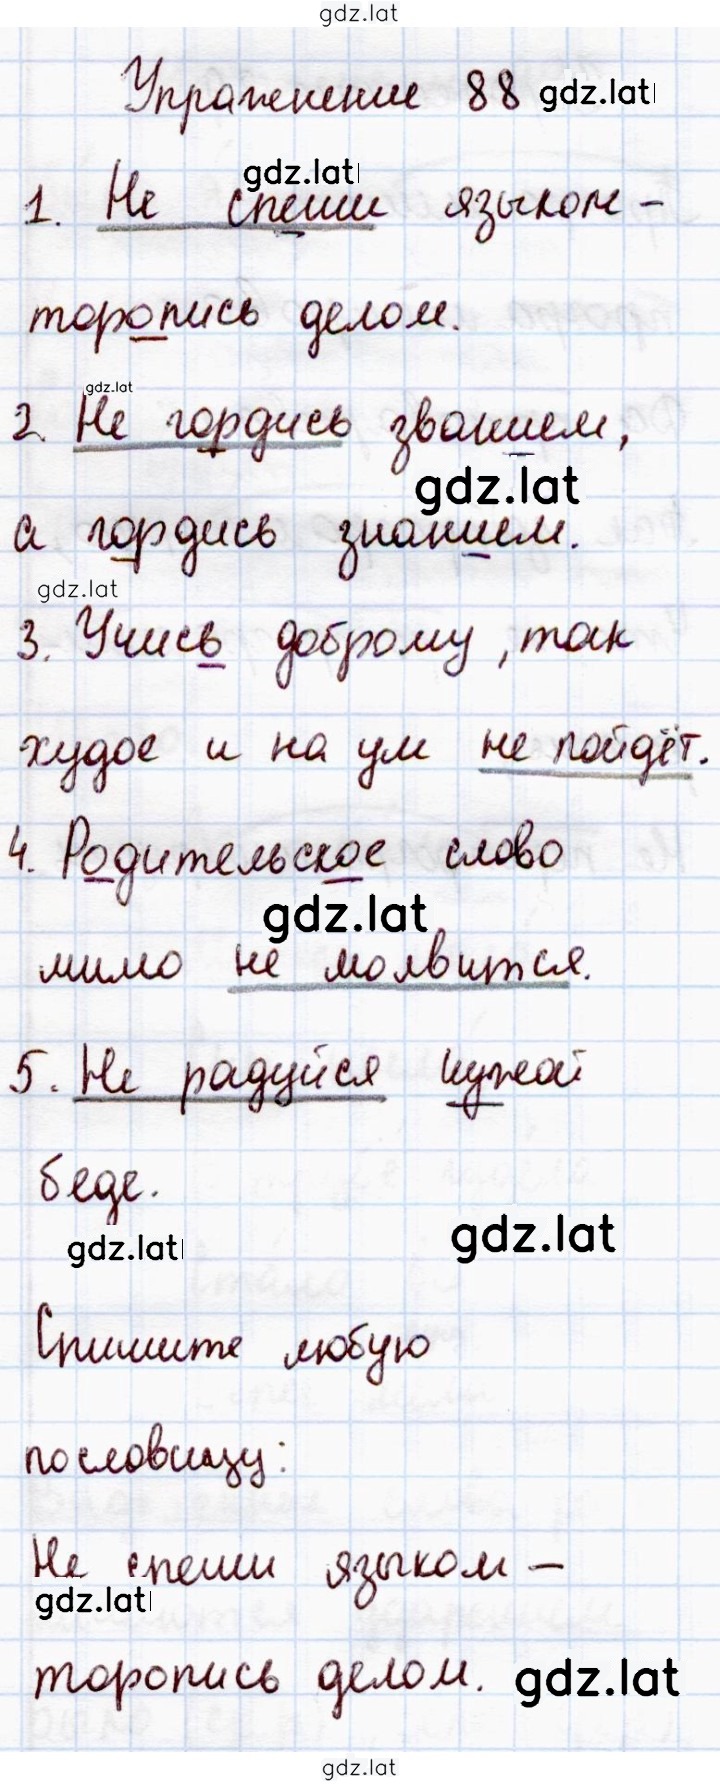 gdz.lat
Упражнение 88 gdz.lat
gdz.lat
1. Не спеши языком –
торопись делом.
gdz.lat
2. Не гордись званием,
gdz.lat
а гордись знанием.
gdz.lat
3. Учись доброму, так
худое и на ум не пойдёт.
4. Родительское слово
gdz.lat
мимо не молвится.
5. Не радуйся чужой
беде.
gdz.lat
gdz.lat
Спишите любую
пословицу:
Не спеши языком –
gdz.lat
торопись делом.
gdz.lat
gdz.lat